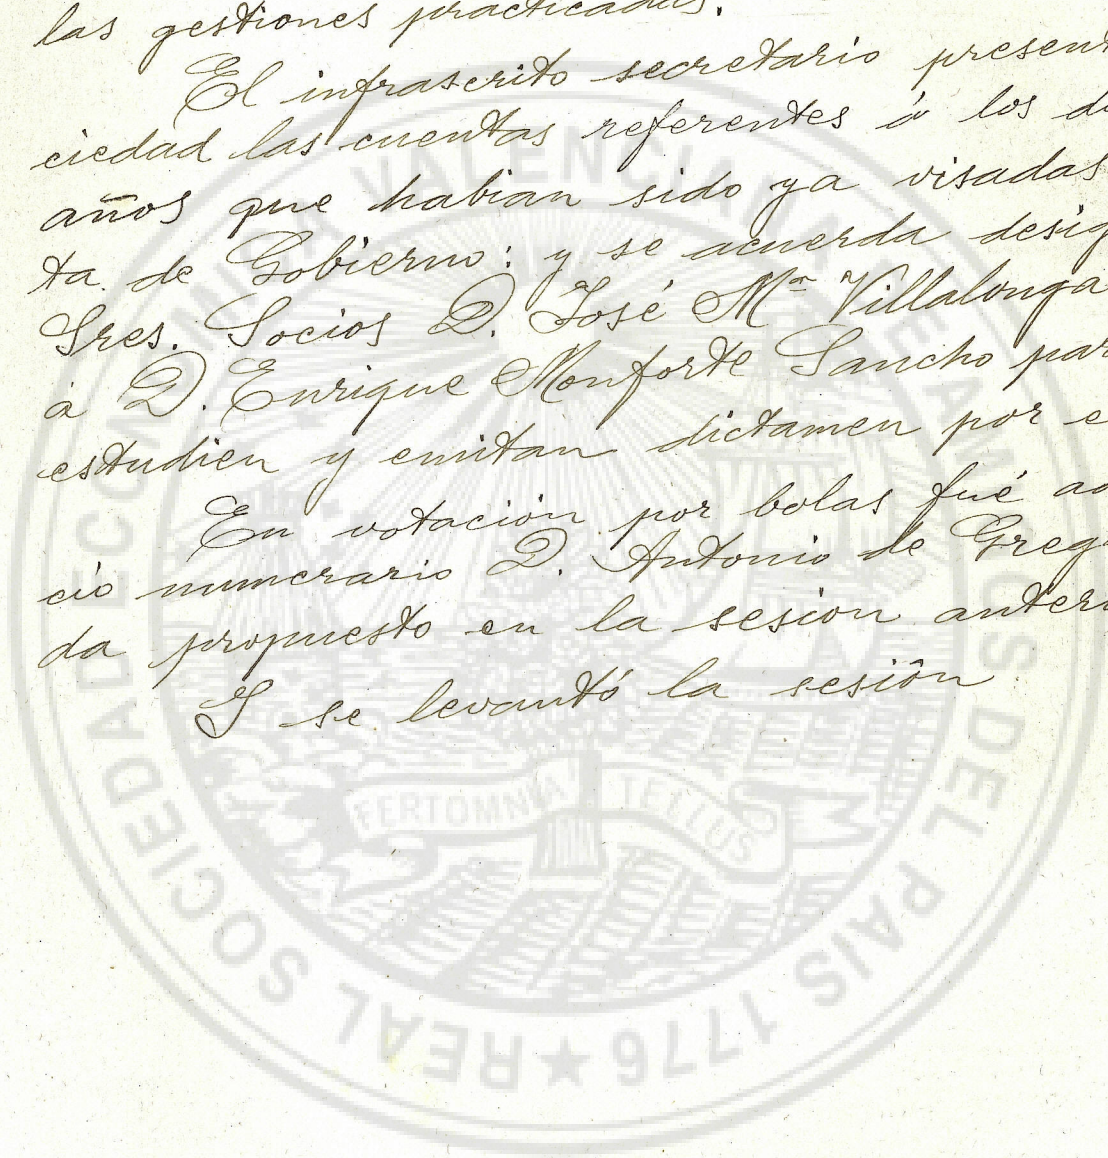 las gestiones practicadas.
El infrascrito secretario present
ciedad las cuentas referentes á los d
años que habian sido ya visadas
ta de Gobierno; y se acuerda desig
Sres. Socios D. José Mª Villalonga
á D. Enrique Monforte Sancho par
estudien y emitan dictamen por e
En votación por bolas fué a
cio numerario D. Antonio de Greg
da propuesto en la sesion anteri
Y se levantó la sesión
REAL SOCIEDAD ECONOMICA VALENCIANA DE AMIGOS DEL PAIS 1776
FERT OMNIA TELLUS